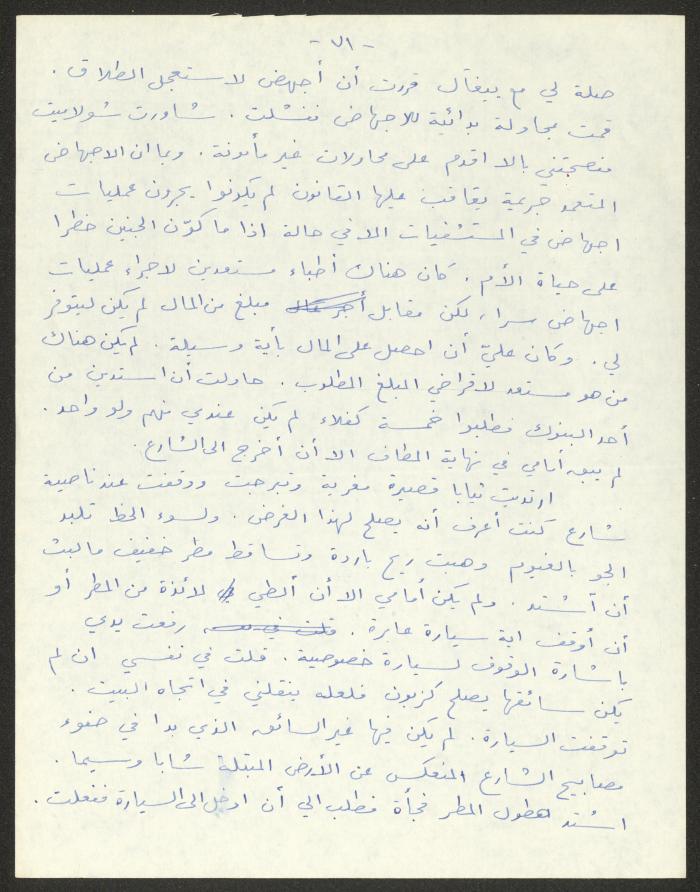 - ٧١ -
صلة لي مع بيغال قررت أن أجهض لاستعجل الطلاق .
قمت بمحاولة بدائية للاجهاض ففشلت . شاورت شولاميت
فنصحتني بالا اقدم على محاولات غير مأمونة . وبما ان الاجهاض
المتعمد جريمة يعاقب عليها القانون لم يكونوا يجرون عمليات
اجهاض في المستشفيات الا في حالة اذا ما كوّن الجنين خطرا
على حياة الأم . كان هناك أطباء مستعدين لاجراء عمليات
اجهاض سرا ، لكن مقابل مبلغ من المال لم يكن ليتوفر
لي . وكان عليّ أن احصل على المال بأية وسيلة . لم يكن هناك
من هو مستعد لاقراضي المبلغ المطلوب . حاولت أن استدين من
أحد البنوك فطلبوا خمسة كفلاء لم يكن عندي منهم ولو واحد .
لم يبق أمامي في نهاية المطاف الا أن أخرج الى الشارع .
ارتديت ثيابا قصيرة مغرية وتبرجت ووقفت عند ناصية
شارع كنت أعرف أنه يصلح لهذا الغرض . ولسوء الحظ تلبد
الجو بالغيوم وهبت ريح باردة وتساقط مطر خفيف ما لبث
أن اشتد . ولم يكن أمامي الا أن أنطي لائذة من المطر أو
أن أوقف اية سيارة عابرة . رفعت يدي
باشارة الوقوف لسيارة خصوصية . قلت في نفسي ان لم
يكن سائقها يصلح كزبون فلعله ينقلني في اتجاه البيت .
توقفت السيارة . لم يكن فيها غير السائق الذي بدا في ضوء
مصابيح الشارع المنعكس عن الأرض المبتلة شابا وسيما .
اشتد هطول المطر فجأة فطلب الي أن ادخل الى السيارة ففعلت .